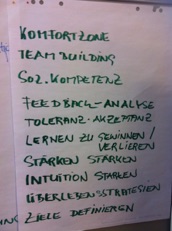 KOMFORTZONE
TEAM BUILDING
SOZ. KOMPETENZ
FEEDBACK-ANALYSE
TOLERANZ-AKZEPTANZ
LERNEN ZU GEWINNEN /
VERLIEREN
STÄRKEN STÄRKEN
INTUITION STÄRKEN
ÜBERLEBENSSTRATEGIEN
ZIELE DEFINIEREN